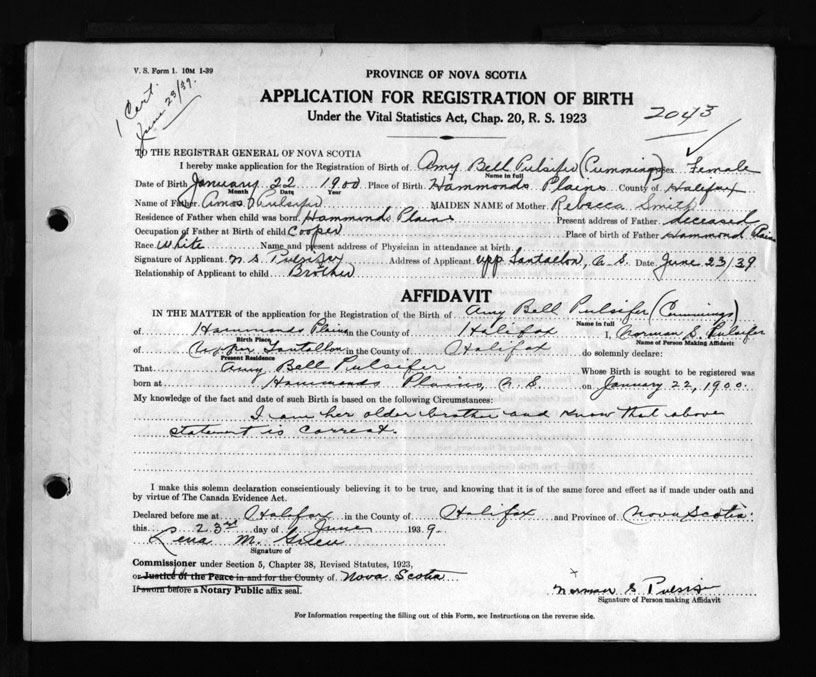 V. S. Form 1. 10M 1-39
1 Cert.
June 23/39.
PROVINCE OF NOVA SCOTIA
APPLICATION FOR REGISTRATION OF BIRTH
Under the Vital Statistics Act, Chap. 20, R. S. 1923
2043
TO THE REGISTRAR GENERAL OF NOVA SCOTIA
I hereby make application for the Registration of Birth of Amy Bell Pulsifer (Cummings) Sex Female
Name in full
Date of Birth January 22 1900 Place of Birth Hammonds Plains County of Halifax
Month Date Year
Name of Father Amos Pulsifer MAIDEN NAME of Mother Rebecca Smith
Residence of Father when child was born Hammonds Plains Present address of Father deceased
Occupation of Father at Birth of child Cooper Place of birth of Father Hammond Plains
Race White Name and present address of Physician in attendance at birth
Signature of Applicant N. S. Pulsifer Address of Applicant Upp Tantallon, N. S. Date June 23/39
Relationship of Applicant to child Brother
AFFIDAVIT
IN THE MATTER of the application for the Registration of the Birth of Amy Bell Pulsifer (Cummings)
Name in full
of Hammonds Plains in the County of Halifax I, Norman S. Pulsifer
Birth Place Name of Person Making Affidavit
of Upper Tantallon in the County of Halifax do solemnly declare:
Present Residence
That Amy Bell Pulsifer Whose Birth is sought to be registered was
born at Hammonds Plains, N. S. on January 22, 1900.
My knowledge of the fact and date of such Birth is based on the following Circumstances:
I am her older brother and know that above
statement is correct.
I make this solemn declaration conscientiously believing it to be true, and knowing that it is of the same force and effect as if made under oath and
by virtue of The Canada Evidence Act.
Declared before me at Halifax in the County of Halifax and Province of Nova Scotia
this 23rd day of June 1939.
Lena M. Green
Signature of
Commissioner under Section 5, Chapter 38, Revised Statutes, 1923,
or Justice of the Peace in and for the County of Nova Scotia
If sworn before a Notary Public affix seal.
x Norman S Pulsifer
Signature of Person making Affidavit
For Information respecting the filling out of this Form, see Instructions on the reverse side.